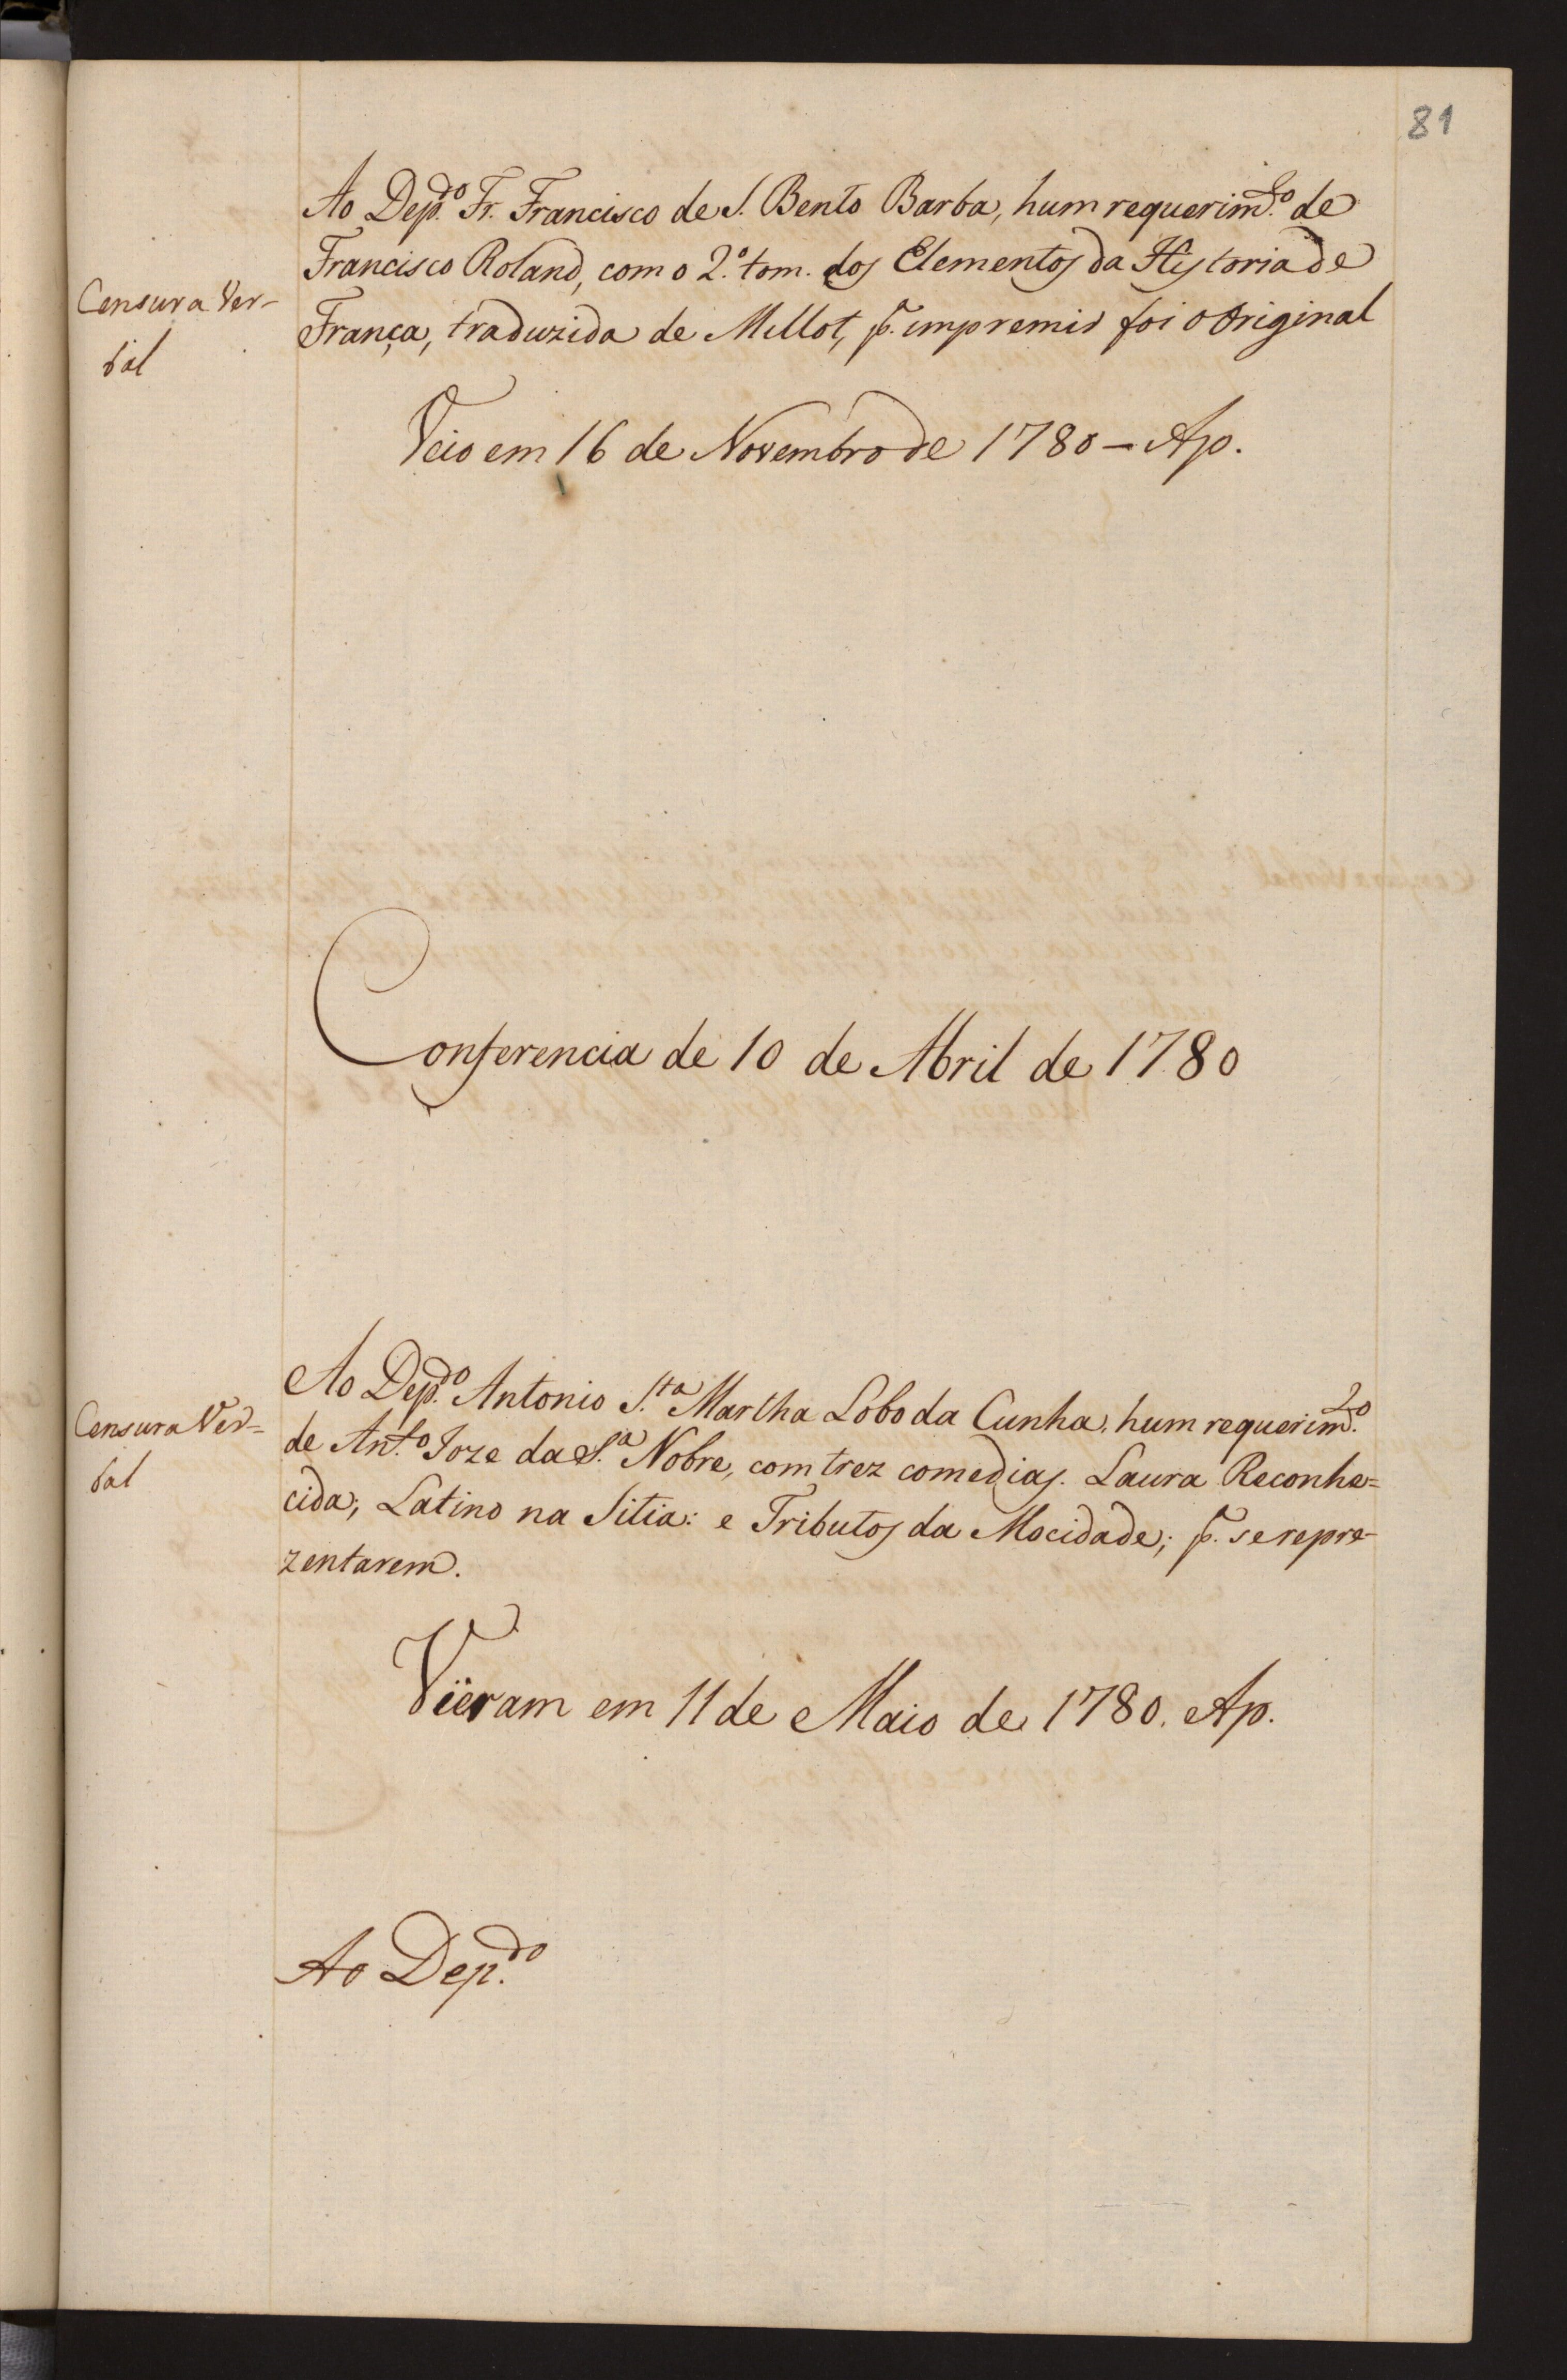 81
Ao Dep.do Fr. Francisco de S. Bento Barba, hum requerim.to de
Francisco Roland, com o 2.o tom. dos Elementos da Historia de
França, traduzida de Millot, p.a impremir foi o Original
Censura Ver-
bal
Veio em 16 de Novembro de 1780 - Ap.
Conferencia de 10 de Abril de 1780
Ao Dep.do Antonio S.ta Martha Lobo da Cunha, hum requerim.to
de Ant.o Joze da S.a Nobre, com trez comedias. Laura Reconhe=
cida; Latino na Sitia: e Tributos da Mocidade; p.a se repre-
zentarem.
Censura Ver=
bal
Vieram em 11 de Maio de 1780. Ap.
Ao Dep.do